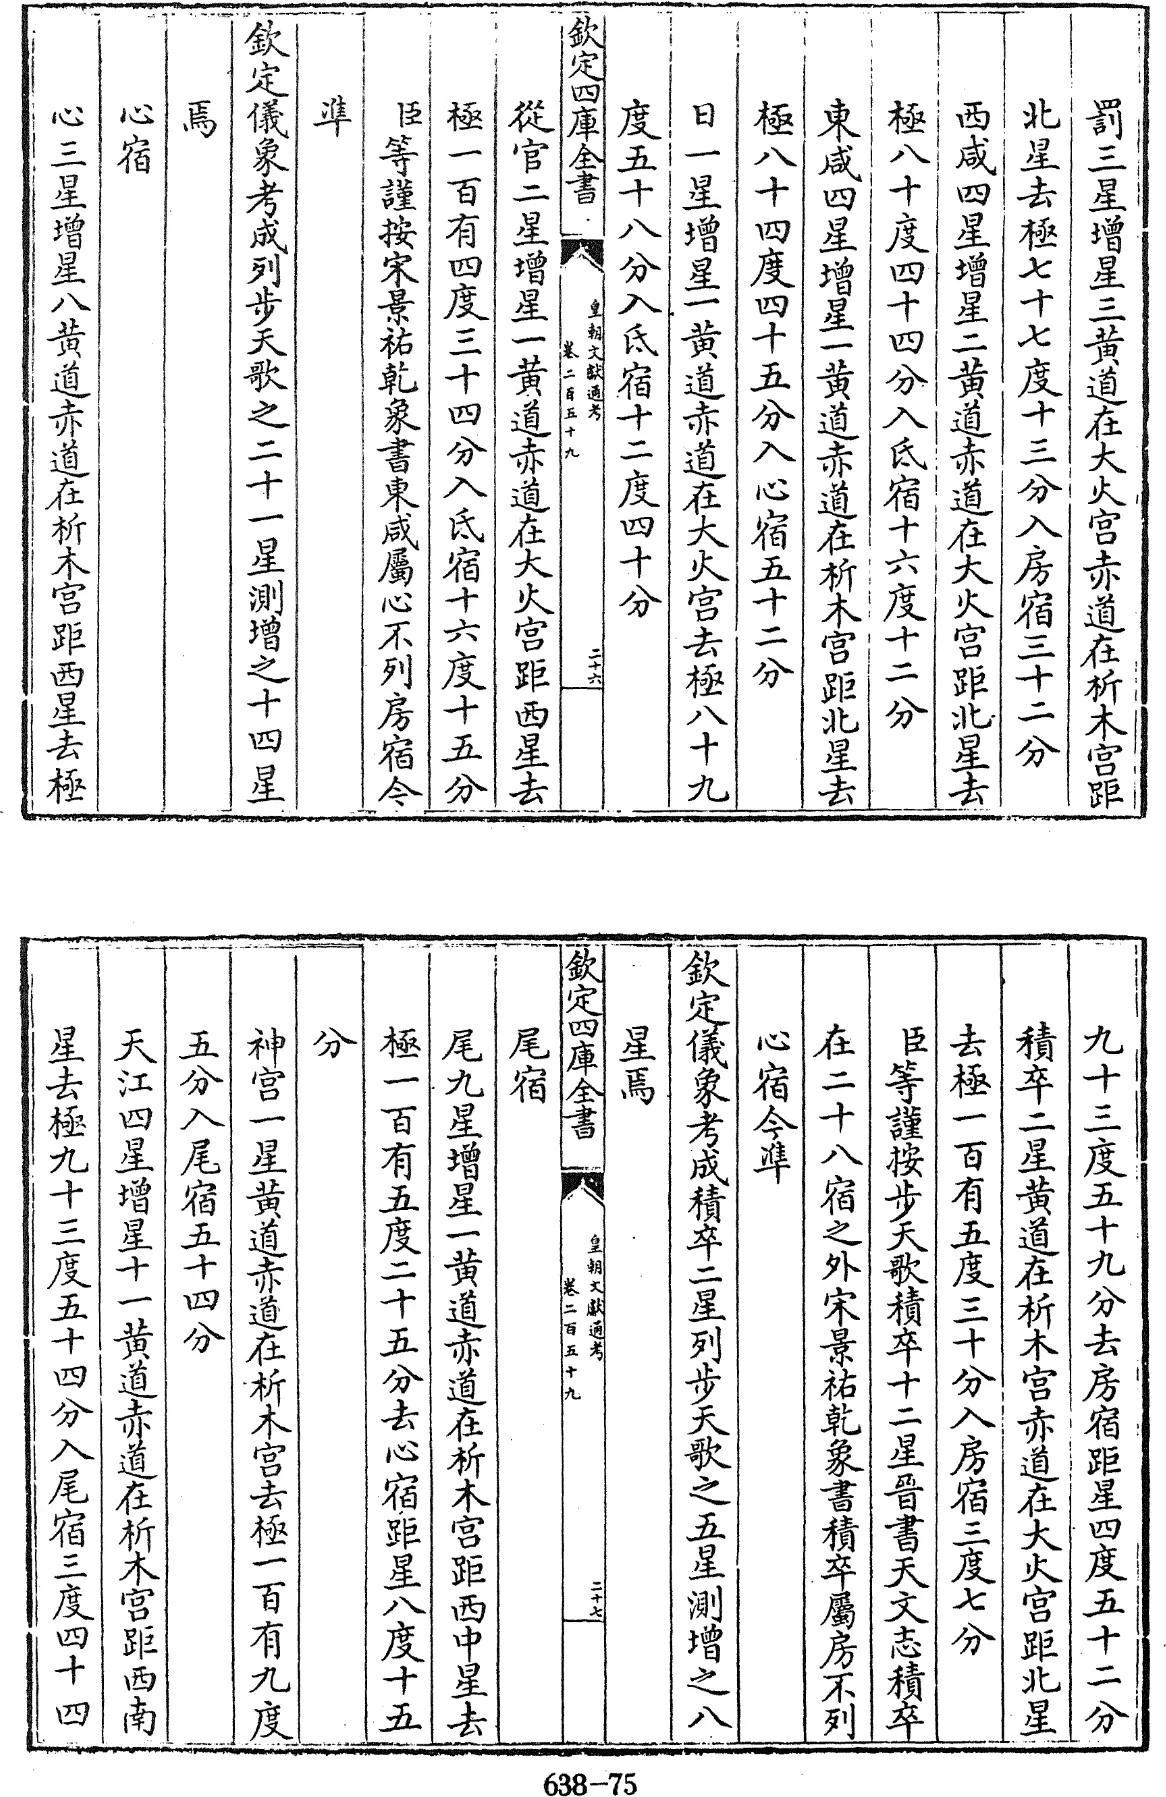 罰三星增星三黃道在大火宮赤道在析木宮距
北星去極七十七度十三分入房宿三十二分
西咸四星增星二黃道赤道在大火宮距北星去
極八十度四十四分入氐宿十六度十二分
東咸四星增星一黃道赤道在析木宮距北星去
極八十四度四十五分入心宿五十二分
日一星增星一黃道赤道在大火宮去極八十九
度五十八分入氐宿十二度四十分
欽定四庫全書
皇朝文獻通考
卷二百五十九
二十六
從官二星增星一黃道赤道在大火宮距西星去
極一百有四度三十四分入氐宿十六度十五分
臣等謹按宋景祐乾象書東咸屬心不列房宿今
準
欽定儀象考成列步天歌之二十一星測增之十四星
焉
心宿
心三星增星八黃道赤道在析木宮距西星去極
九十三度五十九分去房宿距星四度五十二分
積卒二星黃道在析木宮赤道在大火宮距北星
去極一百有五度三十分入房宿三度七分
臣等謹按步天歌積卒十二星晉書天文志積卒
在二十八宿之外宋景祐乾象書積卒屬房不列
心宿今準
欽定儀象考成積卒二星列步天歌之五星測增之八
星焉
欽定四庫全書
皇朝文獻通考
卷二百五十九
二十七
尾宿
尾九星增星一黃道赤道在析木宮距西中星去
極一百有五度二十五分去心宿距星八度十五
分
神宮一星黃道赤道在析木宮去極一百有九度
五分入尾宿五十四分
天江四星增星十一黃道赤道在析木宮距西南
星去極九十三度五十四分入尾宿三度四十四
638-75